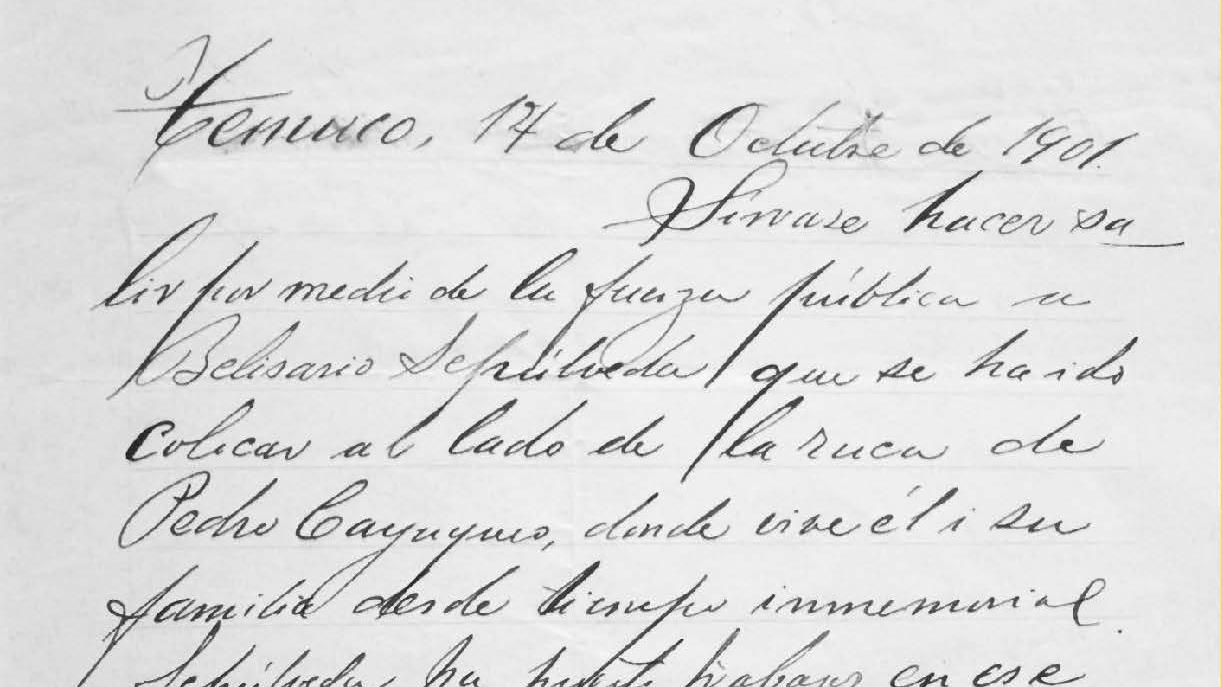 Temuco, 14 de Octubre de 1901.
Sírvase hacer sa
lir por medio de la fuerza pública a
Belisario Sepúlveda que se ha ido
colocar al lado de la ruca de
Pedro Cayuqueo, donde vive él i su
familia desde tiempo inmemorial.
Sepúlveda ha puesto trabajos en ese